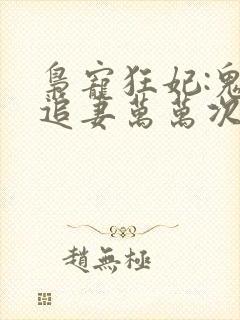 梟寵狂妃:鬼
追妻萬萬次
趙無極